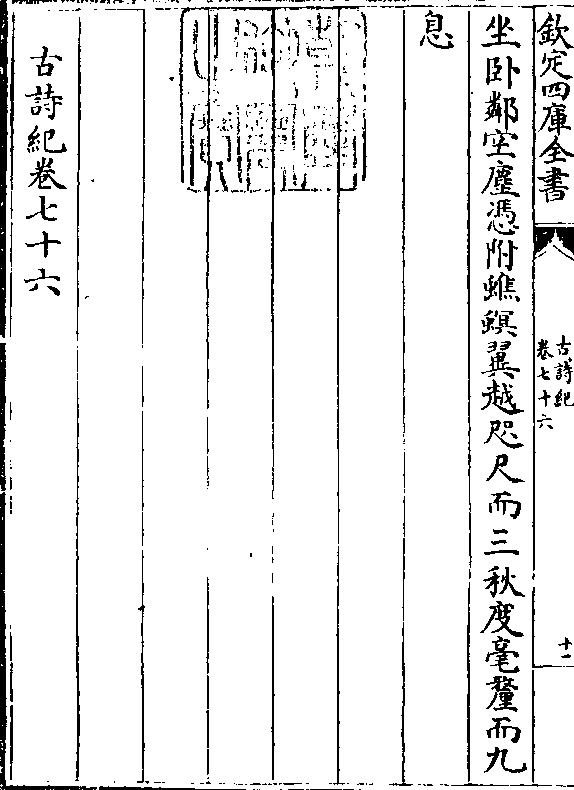 欽定四庫全書
古詩紀
卷七十六
十一
坐卧鄰空塵憑附蟭螟翼越咫尺而三秋度毫釐而九
息
古詩紀卷七十六